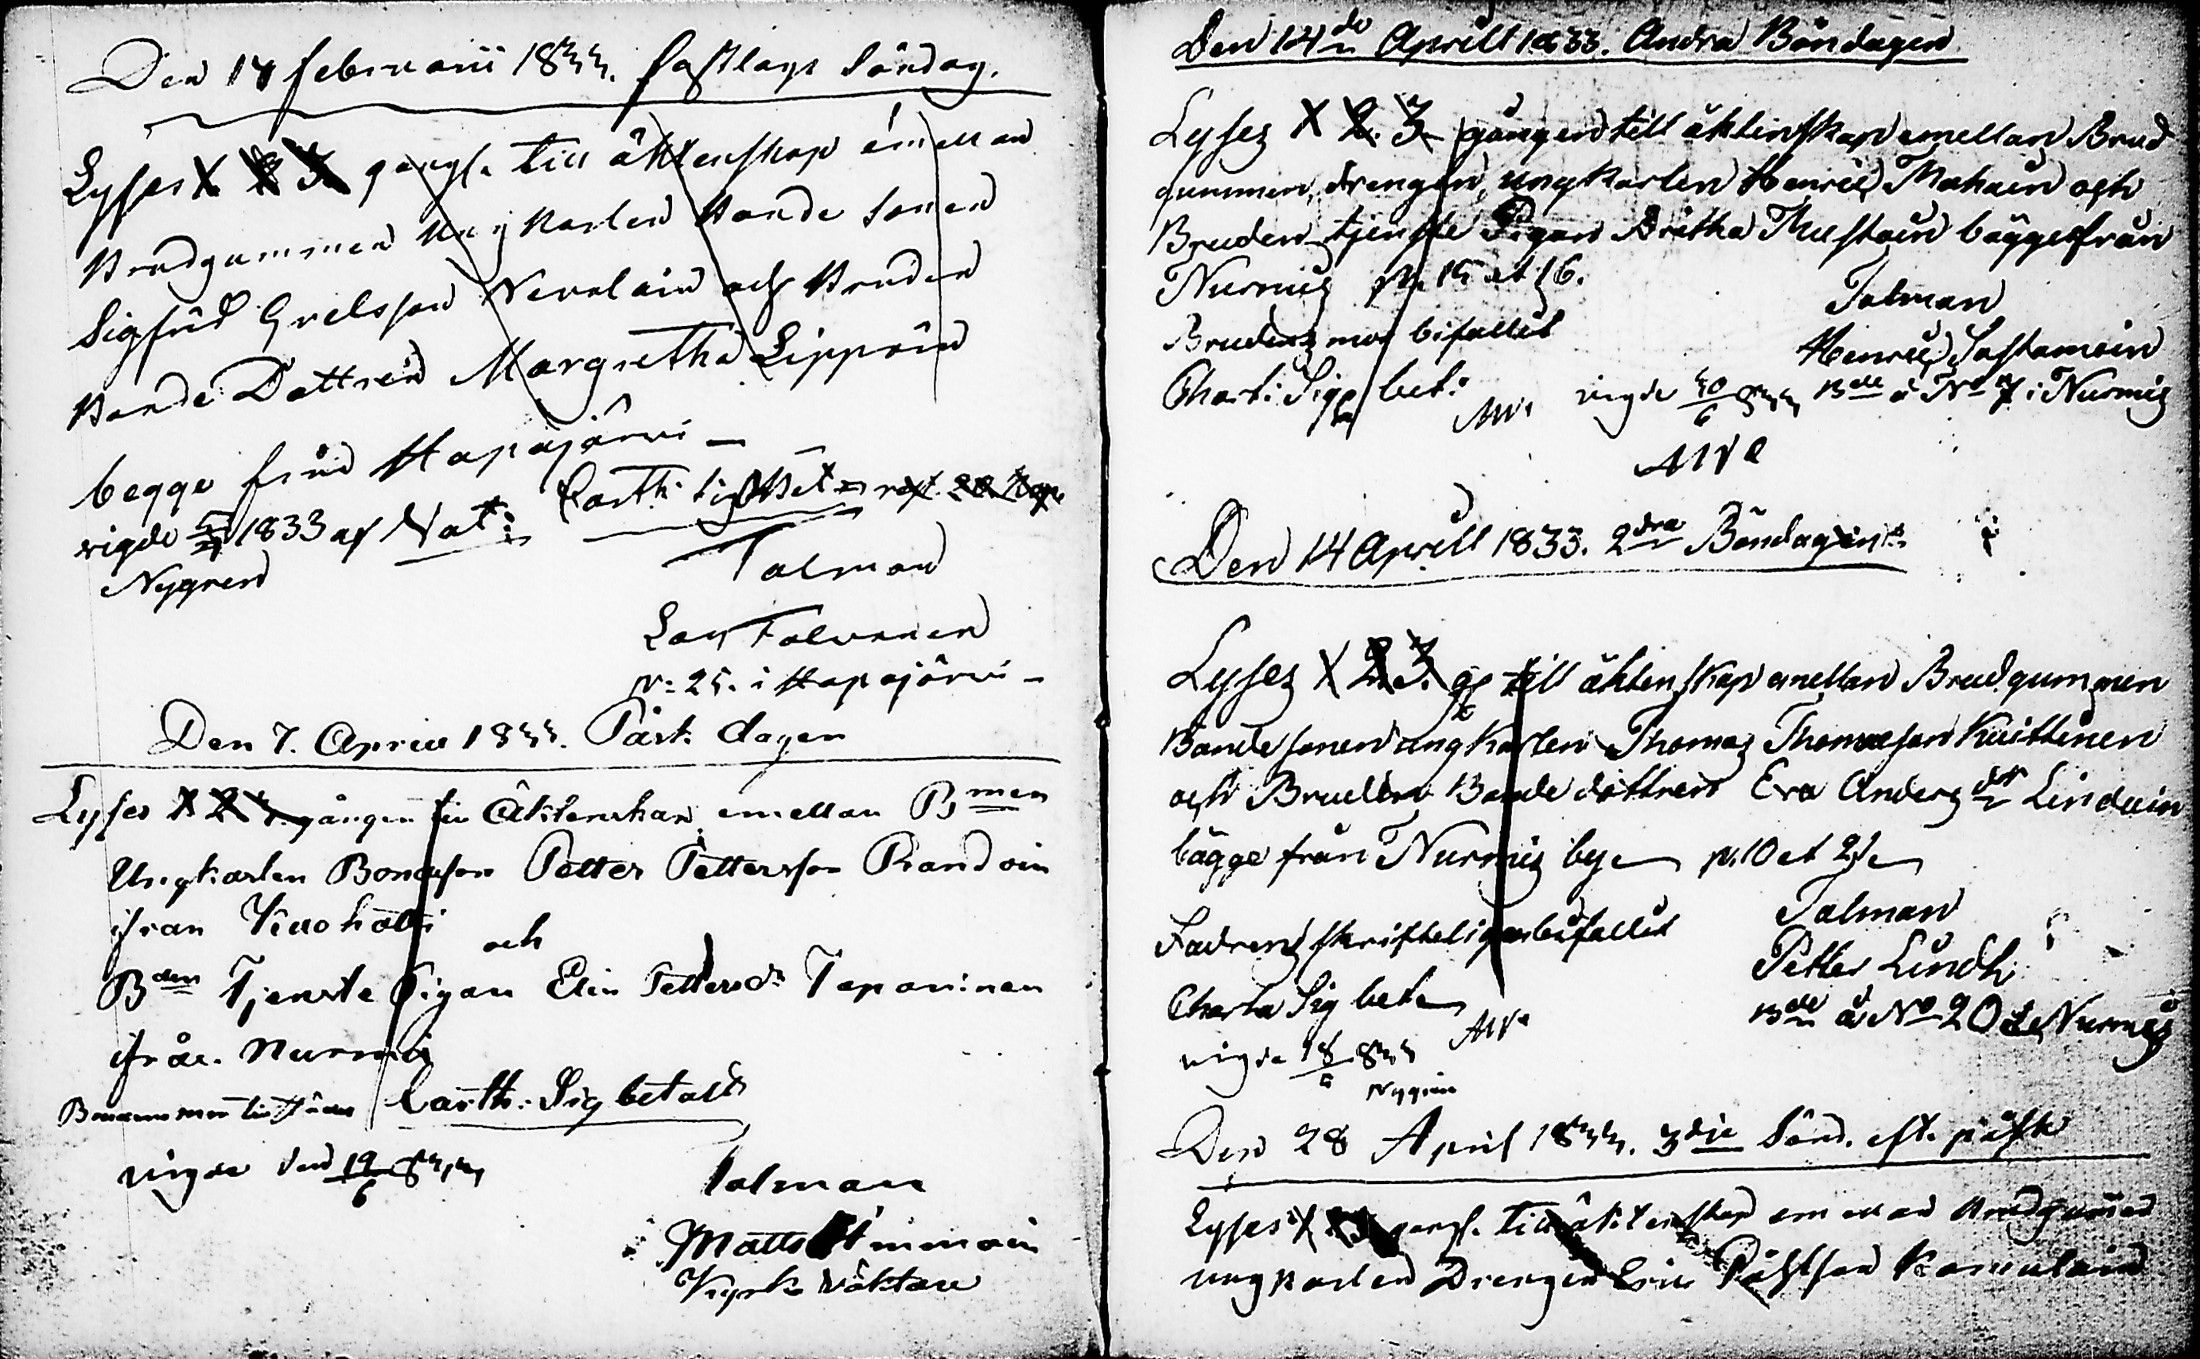 Den 17 februarii 1833. fastlags Söndag.
Lyses 1 2 3 gångn till äktenskap emellan
Brudgummen Ungkarlen Bonde Sonen
Sigfrid Grelsson Nevalain och Bruden
Bonde Dottren Margretha Lippoin
begge från Hapajärvi
vigde 1833 af Vat: Carth: sig betalt
Nygren
Talman
Lars Tolvanen
N: 25. i Hapajärvi
Den 7. April 1833. Påsk dagen
Lyses 1 2 3 gången till Äktenskap emellan Bmen
Ungkarlen Bondeson Petter Pettersson Randoin
ifrån Kuohatti
och
Bden Tjenste Pigan Elin Pettersdr Taponinen
ifrån Nurmis
Carth: Sig betalt
vigde den 19/6 833
Talman
Matts Immoin
Kyrko väktare
Den 14de Aprill 1833. Andra Böndagen
Lyses 1 2. 3 gången till äktenskap emellan Brud
gummen, drengen, ungkarlen Henric Mahoin och
Bruden tjenste Pigan Britha Mustoin bägge från
Nurmis N. 15 et 16.
Brudens mor bifallit
Talman
Henric Sastamoin
Chart: Sig bet: vigde 30/6 833 Bde å No 7 i Nurmis
Den 14 Aprill 1833. 2dra Böndagen
Lyses 1 2 3 gg till äktenskap emellan Brudgummen
Bonde sonen ungkarlen Thomas Thomasson Kuittinen
och Bruden Bonde dottren Eva Anders dr Lindoin
bägge från Nurmis by N. 10 et 21
Fadrens skrifteliga bifallit
Talman
Petter Lindh
Charta Sig bet
Bde å No 20 i Nurmis
vigde 18/6 833
Nygrén
Den 28 April 1833. 3die Sönd. eft. påsk
Lyses 1 2 3 gångn. till äktenskap emellan Brudgummen
ungkarlen Drengen Eric Romulain